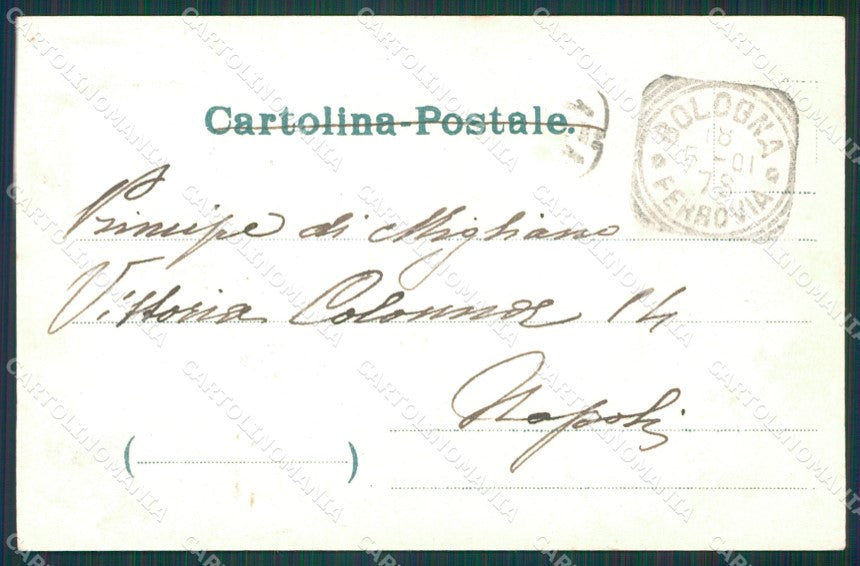 Cartolina-Postale.
BOLOGNA
18
5 01
7S
FERROVIA
Principe di Migliano
Vittoria Colonna 14
Napoli
CARTOLINOMANIA